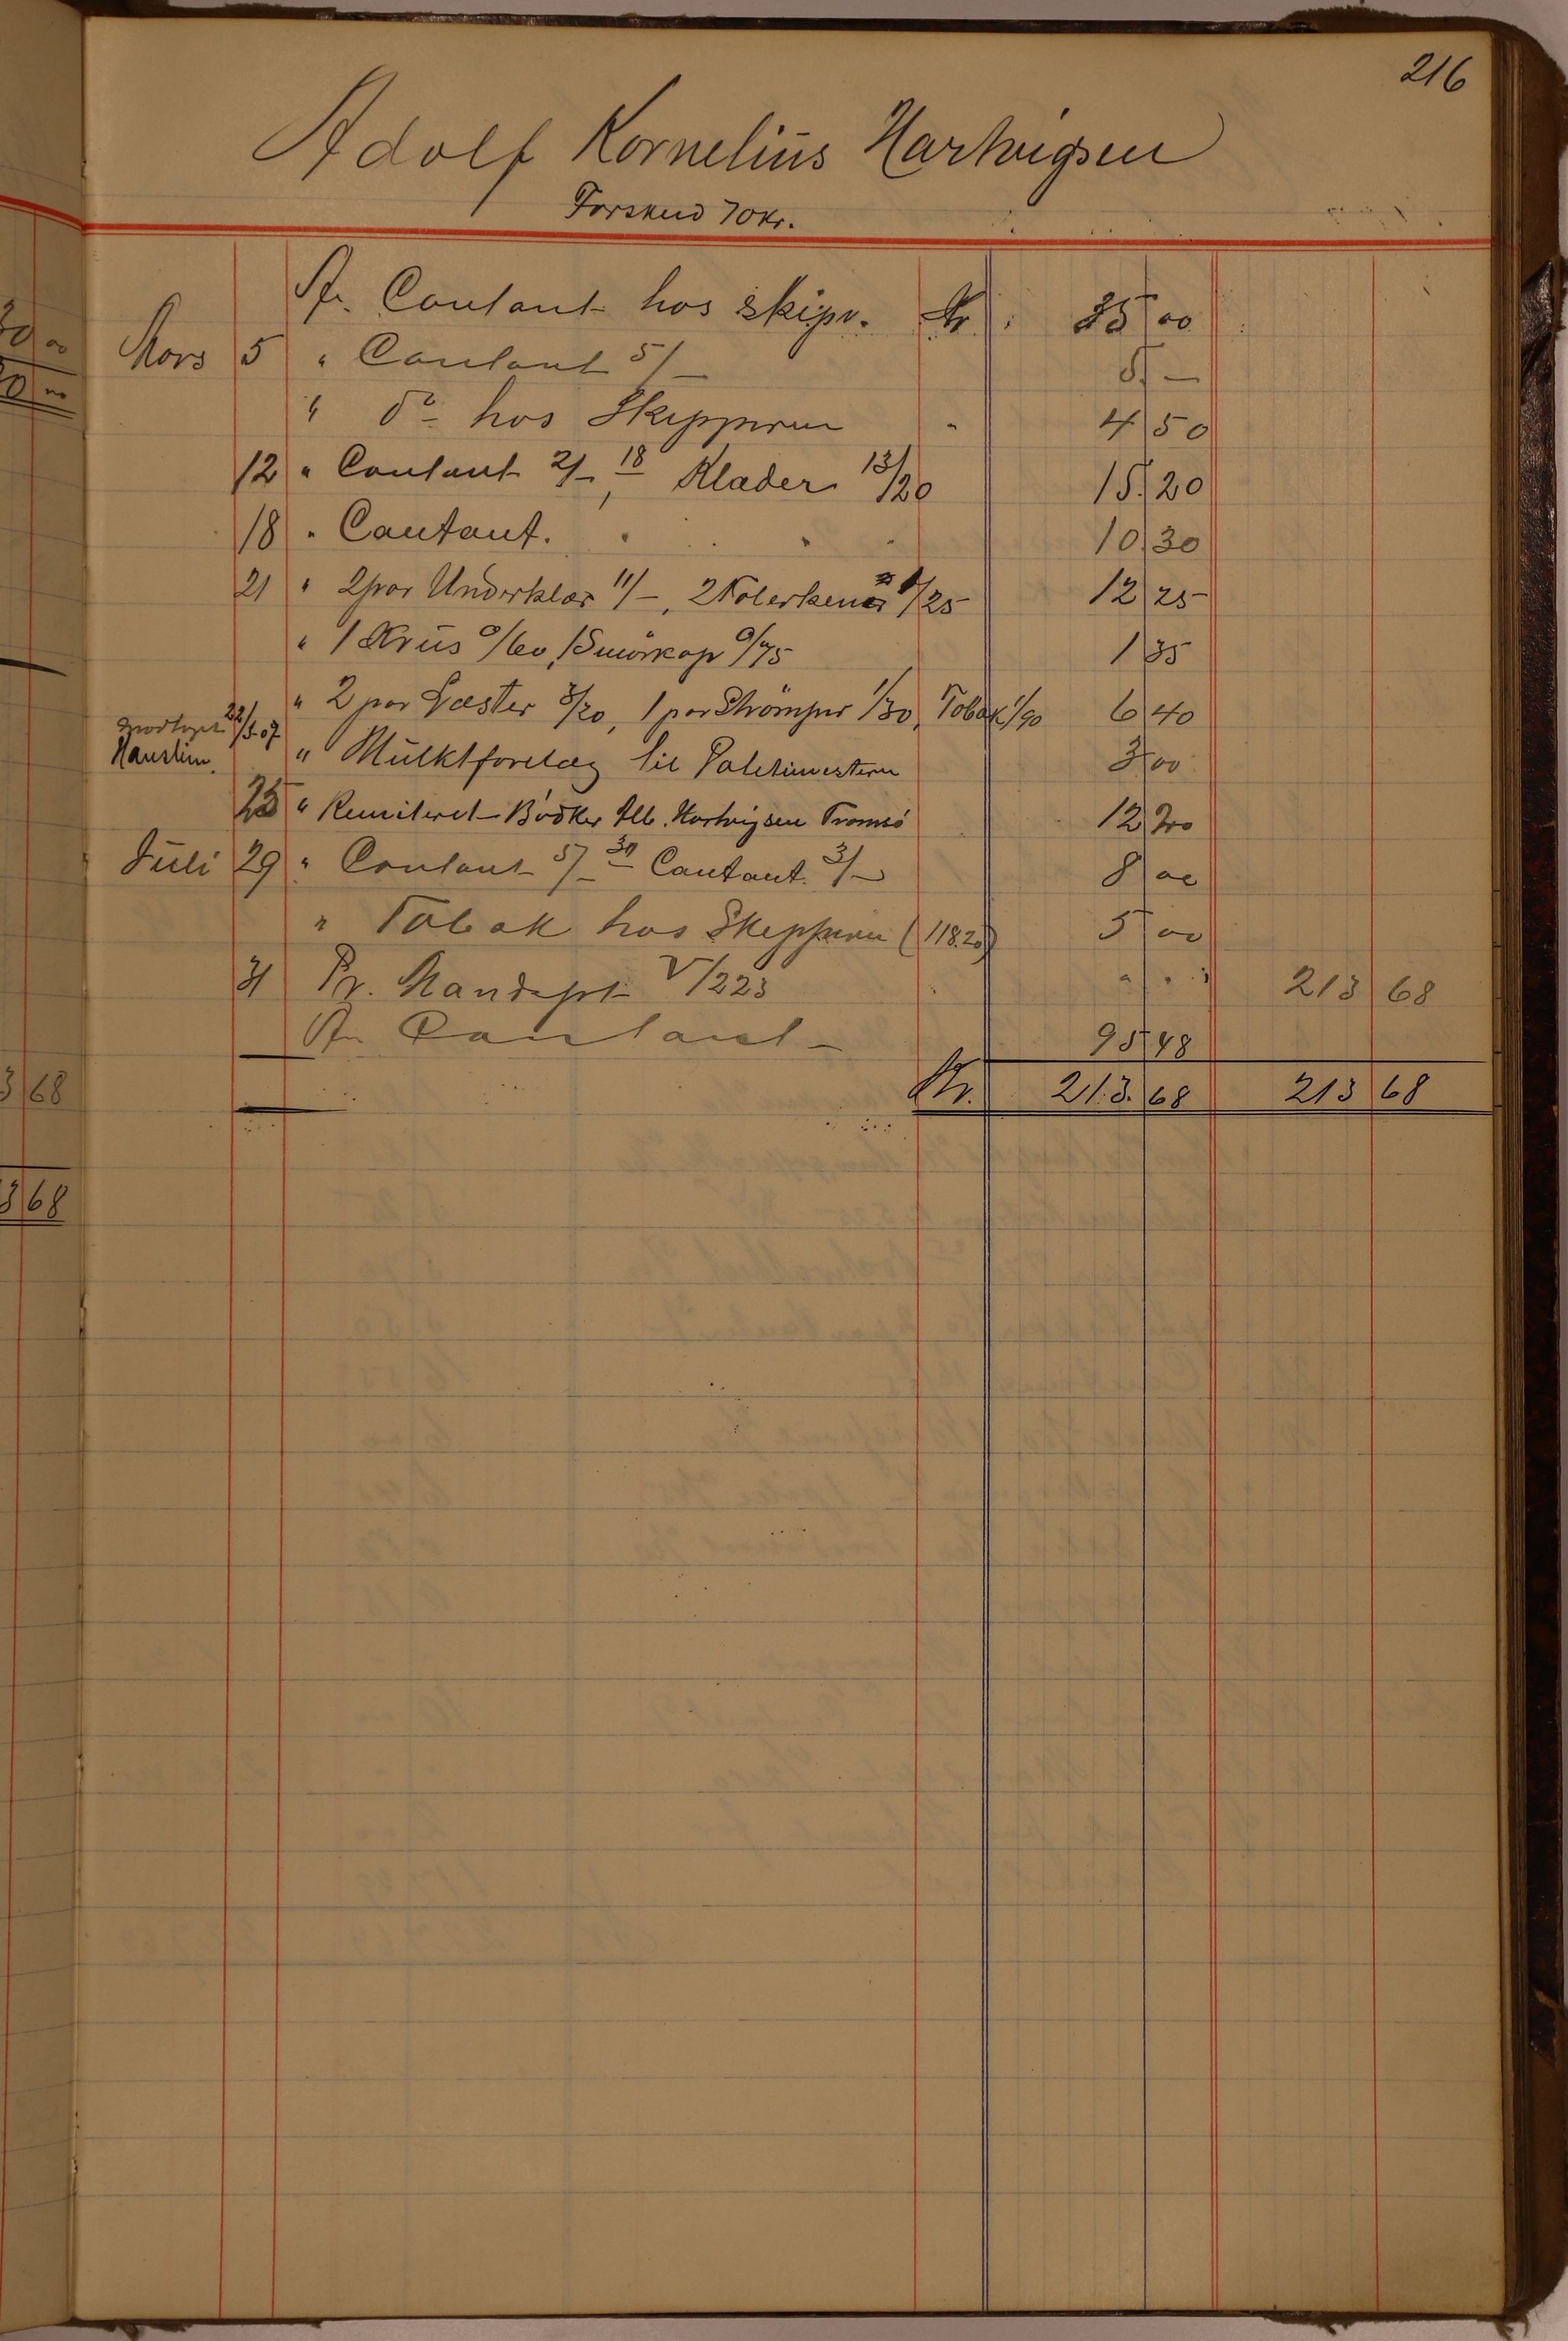 216
Adolf Kornelius Hartvigsen
Forskud 70 kr.
An Contant hos skipr. Kr. 35 00
Mars 5 " Contant 5/- 5 —
" do hos Skipperen " 4 50
12 " Contant 2/-, 18 Klæder 13/20 15 20
18 " Contant. 10 30
21 " 2 par Underklær 11/-, 2 Tolerkener 1/25 12 25
" 1 Krus 0/60, 1 Smörkop 0/75 1 35
" 2 par Læster 3/20, 1 par Strömper 1/30, Tobak 1/90 6 40
22/3-07
" Mulktforelæg til Politimesteren 3 00
25 " Remiteret Bödker Alb. Hartvigsen Tromsö 12 20
Juli 29 " Contant 5/- 30 Contant 3/- 8 00
" Tobak hos Skipperen (118.20) 5 00
31 Pr. Mandskpt V/223 " " 213 68
An Contant 95 48
Kr. 213. 68 213 68
30 00
30 00
3 68
3 68